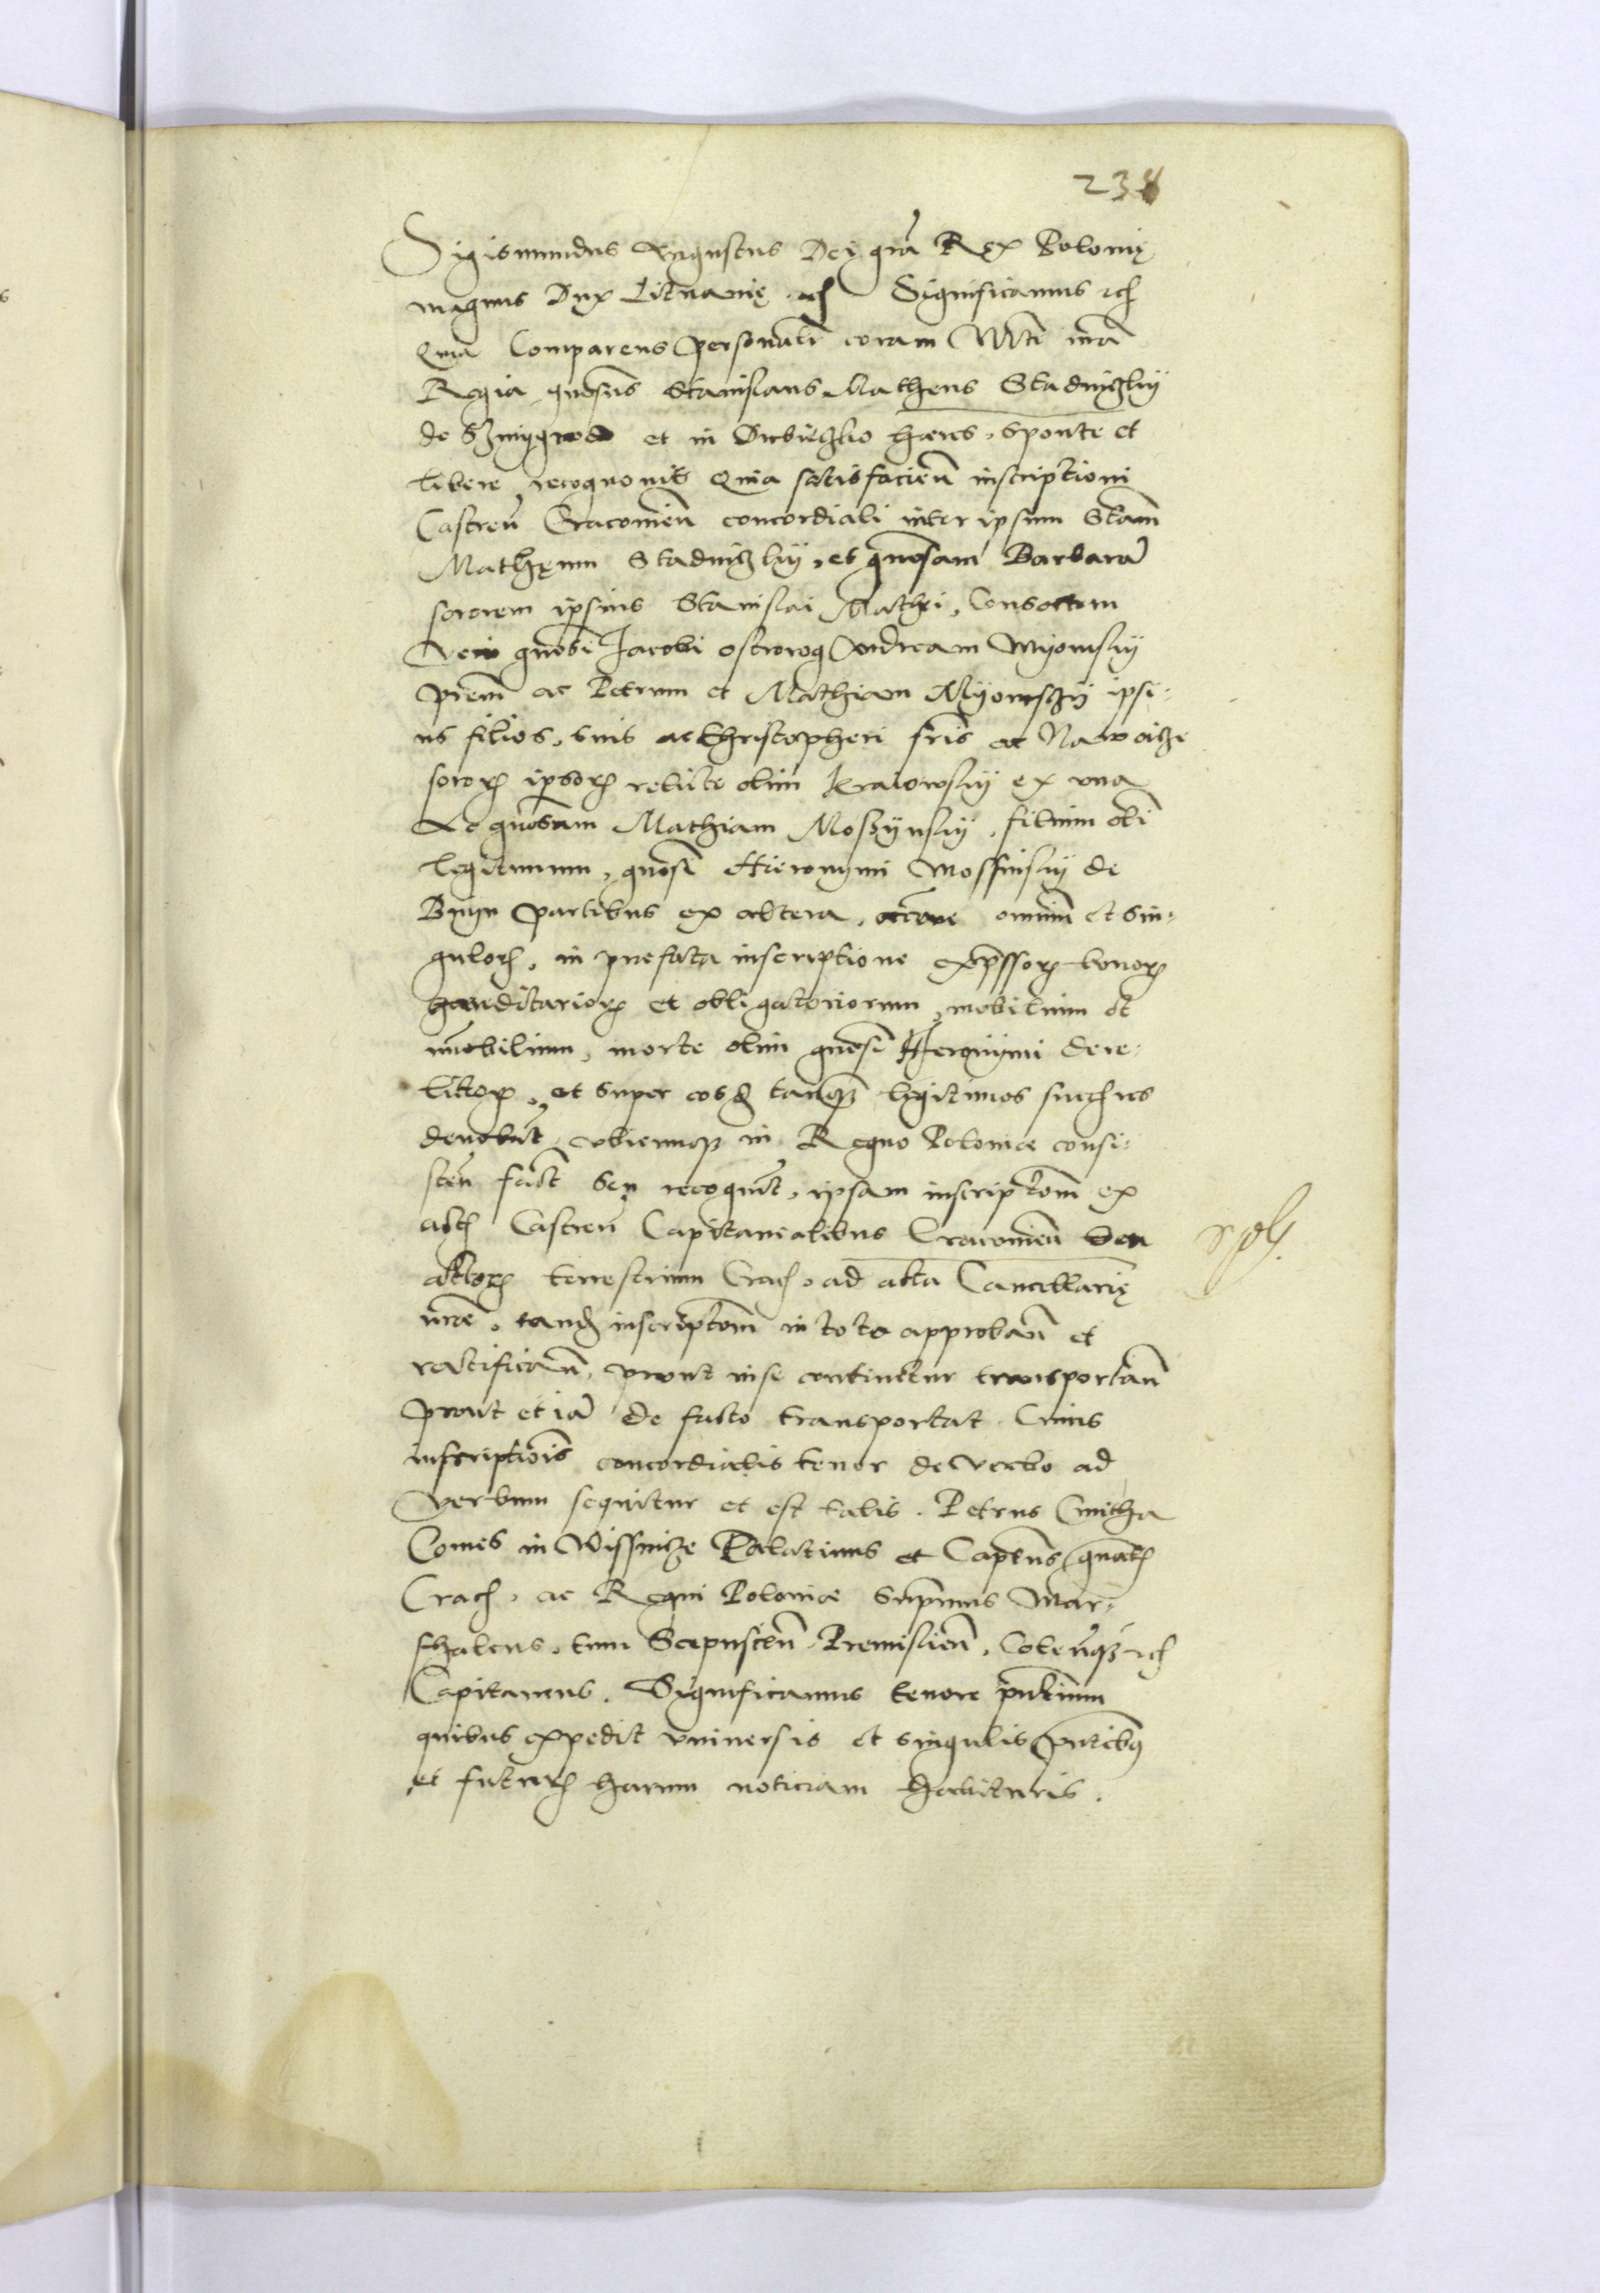 238
Sigismundus Augustus Dei gra Rex Polonię
magnus Dux Lituanię etc Significamus etc
Quia Comparens personalr coram Mte nra
Regia gnosus Stanislaus Matheus Stadniczky
de Szmygrod et in Dubieczko haeres, sponte et
libere recognouit Quia satisfacien inscriptioni
Castren Cracouien concordiali inter ipsum Stam
Mathęum Stadniczky, et gnosam Barbara
sororem ipsius Stanislai Mathei, Consortem
vero gnosi Jacobi ostrorog Andream Myomsky
prem ac Petrum et Mathiam Myomsky ipsi-
us filios, suis ac Christopheri fris ac Nawoicze
soror ipsor relicte olim Kraiowsky ex una
Ac gnosum Mathiam Moszynsky, filium oli
legitimum, gnosi Hieronymi Mossinsky de
Bnyn partibus ex altera, omnium et sin-
gulor, in prefata inscriptione expssor bonor
haereditarior et obligatoriorum, mobilium et
imobilium, morte olim gnosi Hieronymi dere-
lictor, et super eosd tanq legitimos succres
deuolut, vbicunq in Regno Poloniae consi-
sten fact Seu recognit, ipsam inscriptom ex
actis Castren Capitanealibus Cracouien Seu
actor terrestrium Crac, ad acta Cancellarię
nrae, eand inscriptom in toto approban et
ratifican, prout in se continetur transportan
prout et ia de facto transportat. Cuius
inscriptiois concordialis tenor de verbo ad
verbum sequitur et est talis. Petrus Cmitha
Comes in Wissnicze Palatinus et Captus gnalis
Crac, ac Regni Poloniae Supmus Mar-
schalcus, tum Scepusien Premislien, Colenq etc
Capitaneus. Significamus tenore pntium
quibus expedit vniuersis et singulis pntibus
et futuris harum noticiam habituris.